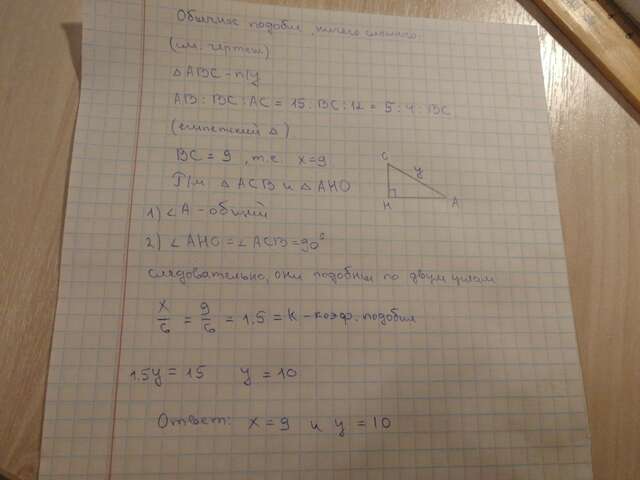 Обычное подобие, ничего сложного.
(см. чертеж)
△ABC - п/у
AB : BC : AC = 15 : BC : 12 = 5 : 4 : BC
(египетский △)
BC = 9, т.е. x = 9
Р/м. △ ACB и △ AHO
1) ∠A - общий
2) ∠ AHC = ∠ ACB = 90°
следовательно, они подобны по двум углам
x/6 = 9/6 = 1.5 = k - коэф. подобия
1.5y = 15 y = 10
Ответ: x = 9 и y = 10
C
y
H
A